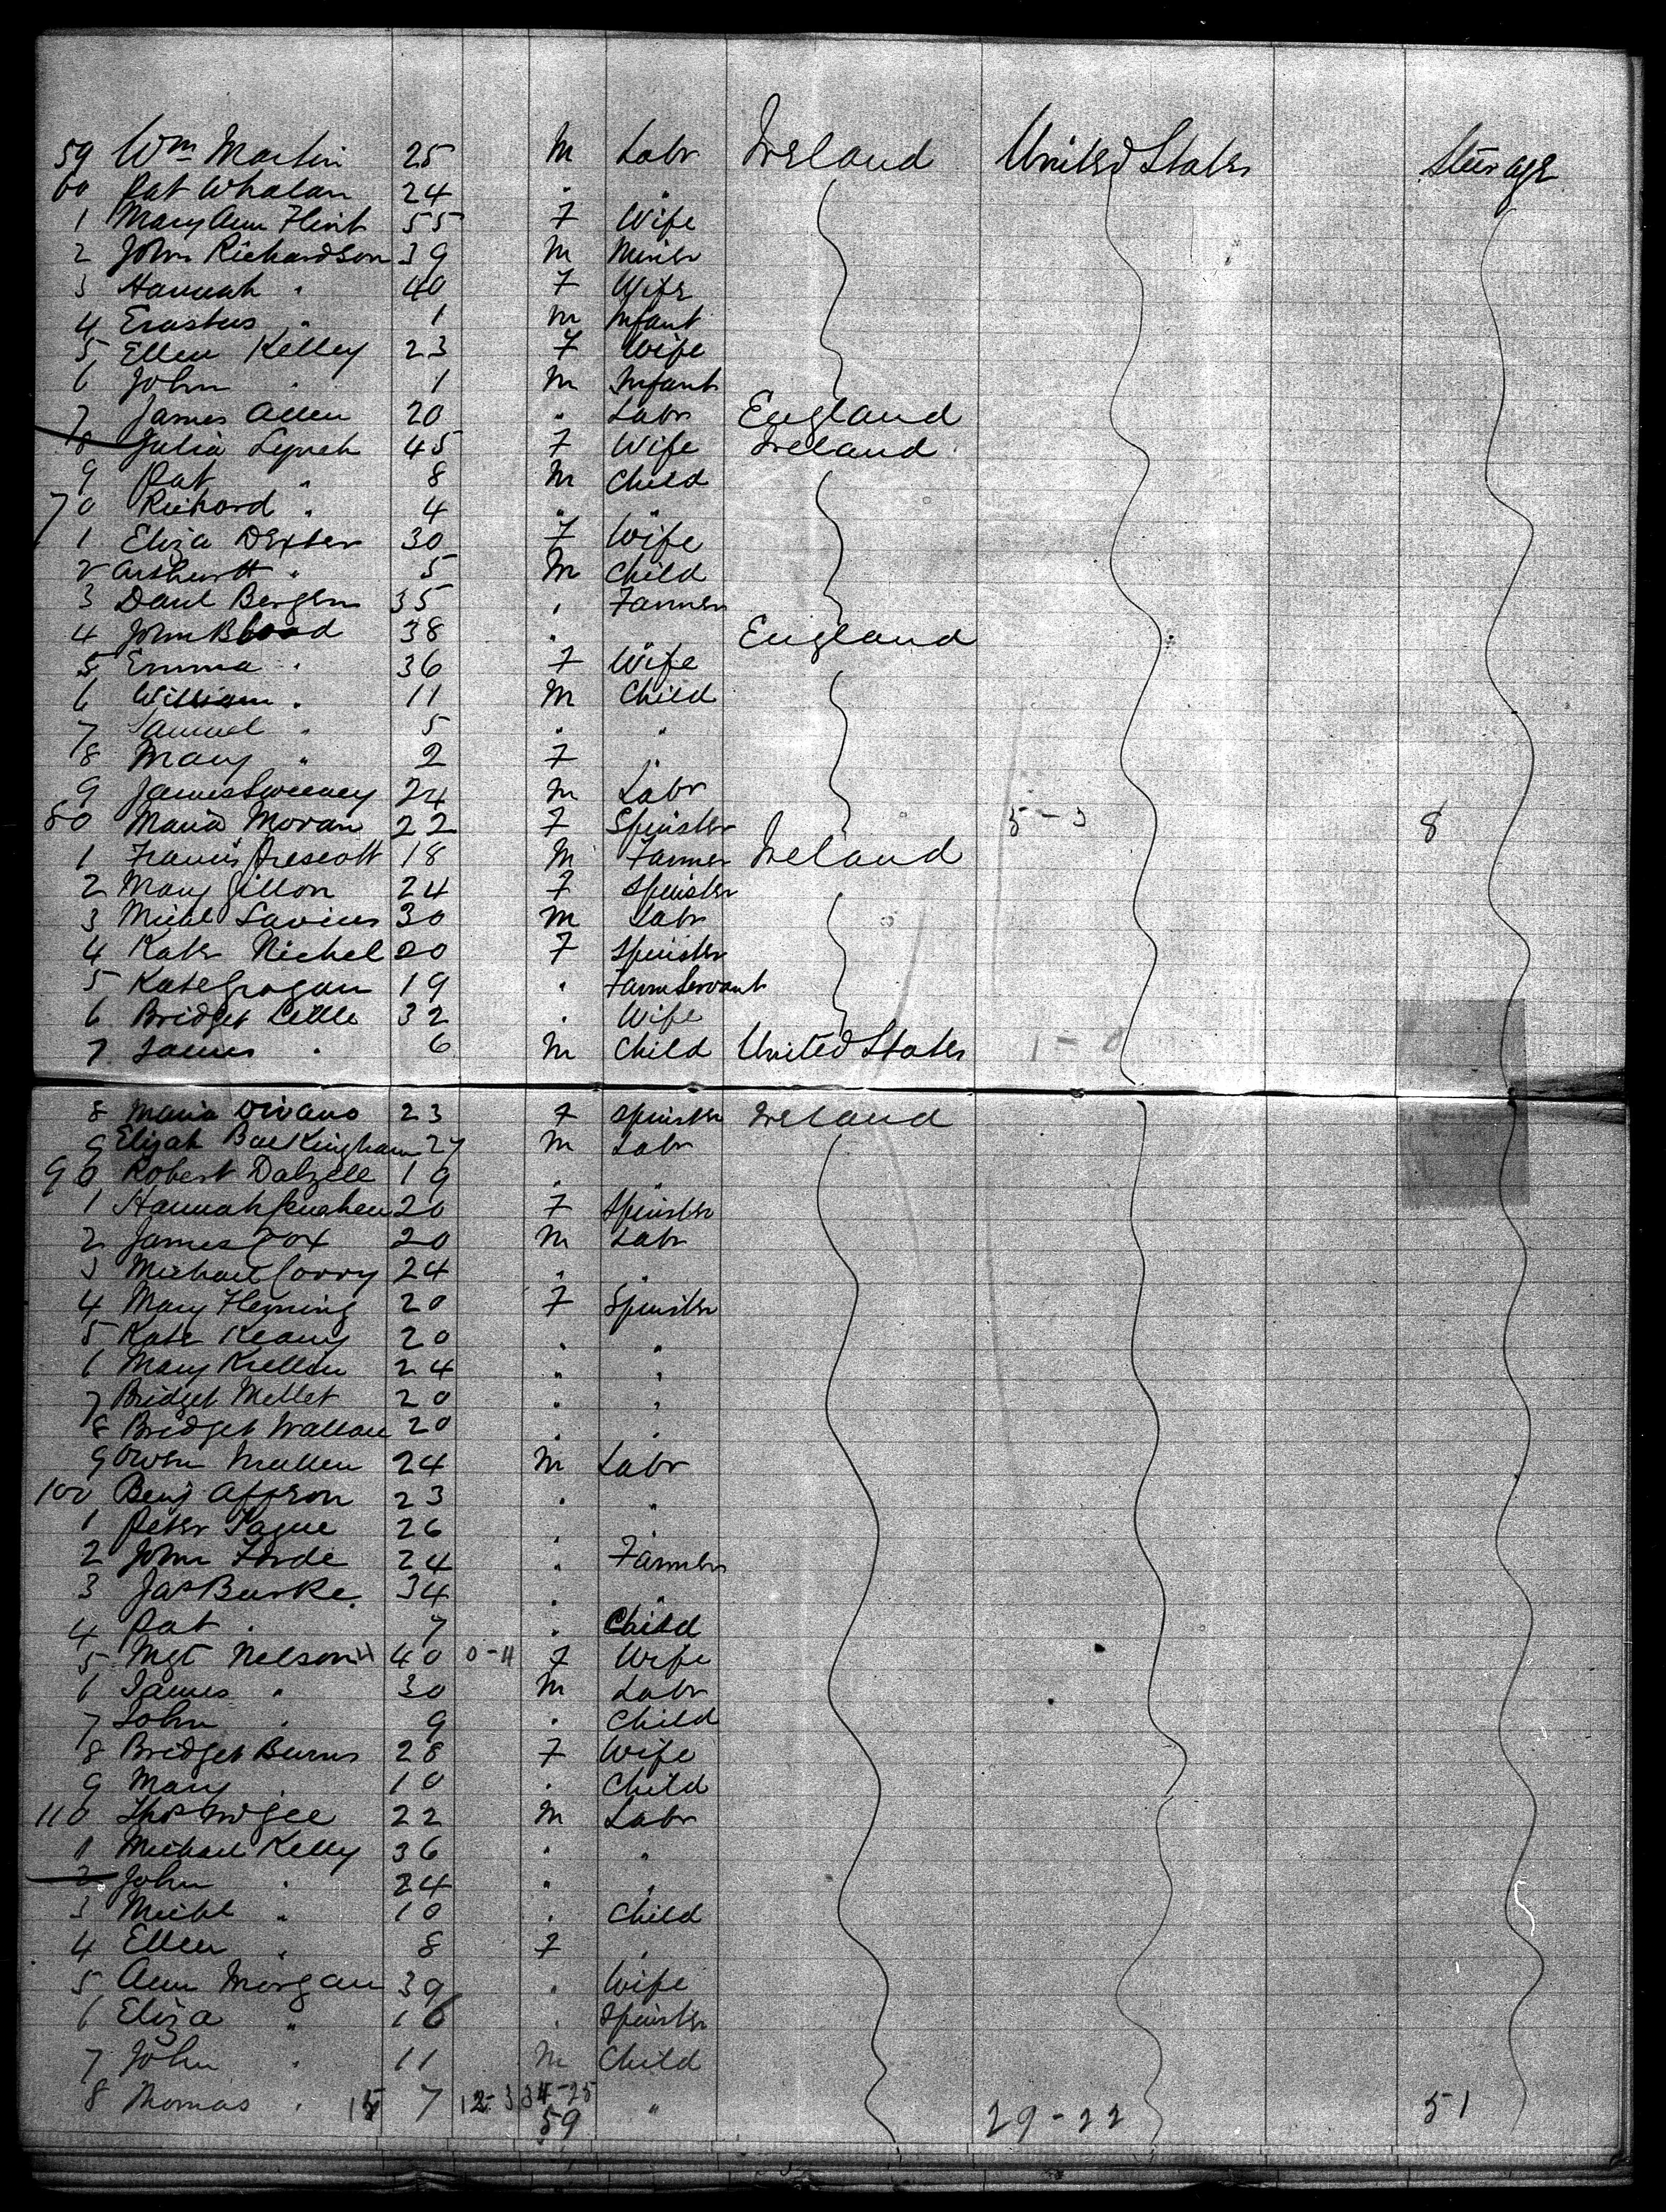 59 Wm Martin 25 M Labr Ireland United States Steerage
60 Pat Whalan 24 " "
1 Mary Ann Flint 55 F Wife
2 John Richardson 39 M Miner
3 Hannah " 40 F Wife
4 Erastus " 1 M Infant
5 Ellen Kelley 23 F Wife
6 John " 1 M Infant
7 James Allen 20 " Labr England
8 Julia Lynch 45 F Wife Ireland
9 Pat " 8 M Child
70 Richard " 4 " "
1 Eliza Dexter 30 F Wife
2 " 5 M Child
3 Danl Bergen 35 " Farmer
4 John Blood 38 " " England
5 Emma " 36 F Wife
6 William " 11 M Child
7 Samuel " 5 " "
8 Mary " 2 F "
9 James Sweeney 24 M Labr
80 Maria Moran 22 F Spinster 5-3 8
1 Francis Prescott 18 M Farmer Ireland
2 Mary Gillon 24 F Spinster
3 Michl 30 M Labr
4 Kate Nichel 20 F Spinster
5 Kate Grogan 19 " Farm Servant
6 Bridget Little 32 " Wife
7 James " 6 M Child United States 1-0
8 Maria 23 F Spinster Ireland
9 Elijah Buckingham 27 M Labr
90 Robert Dalzell 19 " "
1 Hannah 20 F Spinster
2 James Fox 20 M Labr
3 Michael Corry 24 " "
4 Mary Fleming 20 F Spinster
5 Kate Keany 20 " "
6 Mary 24 " "
7 Bridget Mellet 20 " "
8 Bridget Wallace 20 " "
9 Owen Mullen 24 M Labr
100 Benj Affron 23 " "
1 Peter Tague 26 " "
2 John Forde 24 " Farmer
3 Jas Burke 34 " "
4 Pat " 7 " Child
5 Mgt Nelson 40 0-11 F Wife
6 James " 30 M Labr
7 John " 9 " Child
8 Bridget Burns 28 F Wife
9 Mary " 10 " Child
110 Thos McGee 22 M Labr
1 Michael Kelly 36 " "
2 John " 24 " "
3 Michl " 10 " Child
4 Ellen " 8 F "
5 Ann Morgan 39 " Wife
6 Eliza " 16 " Spinster
7 John " 11 M Child
8 Thomas " 15 7 12-3 34-25 "
59 29-22 51